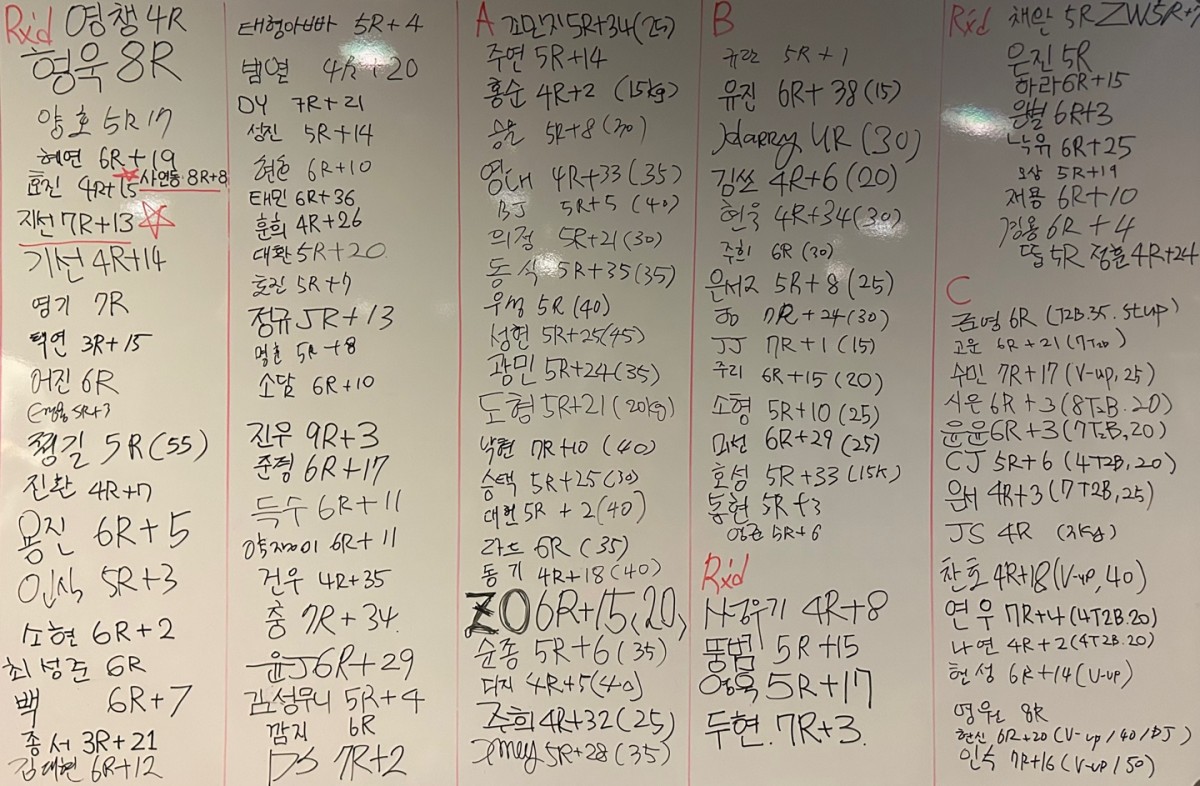 Rx'd 영챙 4R
형욱 8R
양호 5R 17
혜연 6R+19
효진 4R+15 사연동 8R+8
지선 7R+13
기선 4R+14
영기 7R
택연 3R+15
어진 6R
5R+3
쩡길 5R (55)
진환 4R+7
용진 6R+5
인식 5R+3
소현 6R+2
최성준 6R
백 6R+7
종서 3R+21
김대현 6R+12
태형아빠 5R+4
범연 4R+20
DY 7R+21
성진 5R+14
현준 6R+10
태민 6R+36
훈희 4R+26
대환 5R+20
호진 5R+7
정규 5R+13
명훈 5R+8
소담 6R+10
진우 9R+3
준정 6R+17
득수 6R+11
6R+11
건우 4R+35
충 7R+34
윤J 6R+29
김성무니 5R+4
깜지 6R
DS 7R+2
A 고민지 5R+34 (25)
주연 5R+14
홍순 4R+2 (15kg)
승문 5R+8 (30)
영대 4R+33 (35)
BJ 5R+5 (40)
의정 5R+21 (30)
동식 5R+35 (35)
우성 5R (40)
성현 5R+25 (45)
광민 5R+24 (35)
도형 5R+21 (20kg)
낙현 7R+10 (40)
승택 5R+25 (30)
대헌 5R+2 (40)
라드 6R (35)
동기 4R+18 (40)
ZO 6R+15, 20,
순종 5R+6 (35)
디지 4R+5 (40)
주희 4R+32 (25)
Jmey 5R+28 (35)
B
규란 5R+1
유진 6R+38 (15)
Harry 4R (30)
김쏘 4R+6 (20)
현욱 4R+34 (30)
주희 6R (30)
은서2 5R+8 (25)
JO 7R+24 (30)
JJ 7R+1 (15)
주리 6R+15 (20)
소형 5R+10 (25)
미선 6R+29 (25)
호성 5R+33 (15K)
통현 5R+3
영훈 5R+6
Rx'd
4R+8
뚱범 5R+15
영욱 5R+17
두현. 7R+3.
Rx'd 채안 5R ZW 5R+
은진 5R
하라 6R+15
은별 6R+3
낙유 6R+25
5R+19
재용 6R+10
경용 6R+4
뚭 5R 정훈 4R+24
C
조영 6R (T2B.35.St.up)
고운 6R+21 (7T2B)
수민 7R+17 (V-up, 25)
시은 6R+3 (8T2B.20)
윤윤 6R+3 (7T2B, 20)
CJ 5R+6 (4T2B, 20)
은서 4R+3 (7T2B, 25)
JS 4R
찬호 4R+18 (V-up, 40)
연우 7R+4 (4T2B.20)
나연 4R+2 (4T2B.20)
현성 6R+14 (V-up)
영우 8R
현신 6R+20 (V-up/40/DJ)
인수 7R+16 (V-up/50)